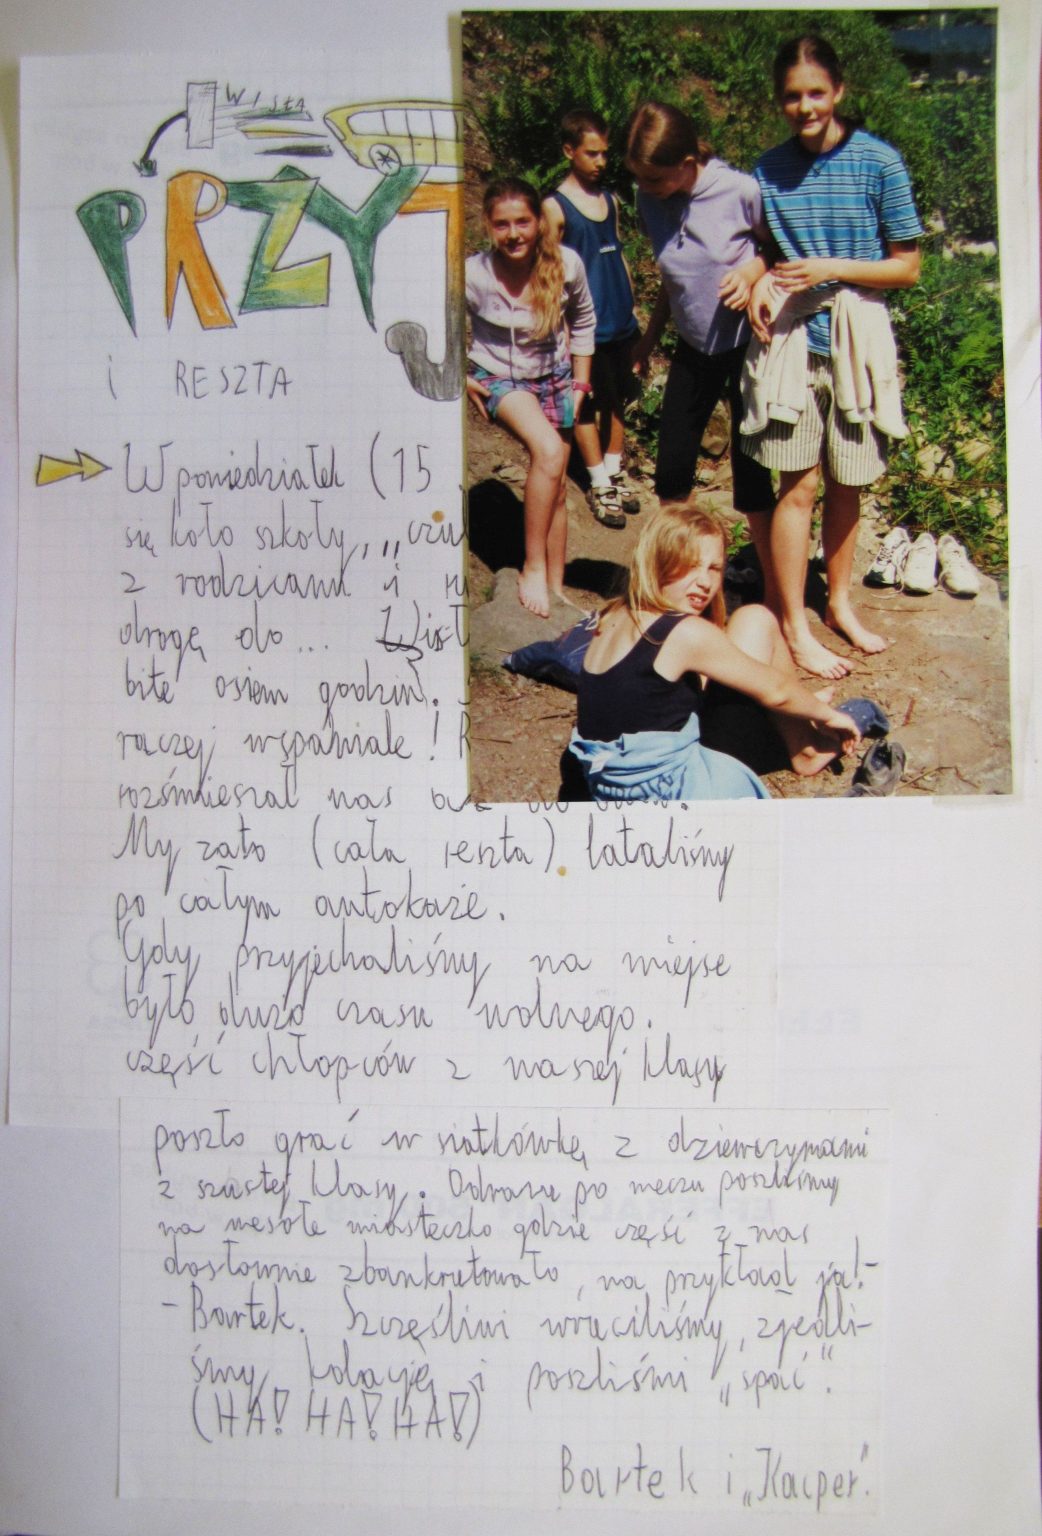 WISŁA
PRZYJ
i RESZTA
W poniedziałek (15
się koło szkoły, „czu
z rodzicami i
drogę do... Wisł
bite osiem godzin.
raczej wspaniale! R
rozśmieszał nas
My zato (cała reszta) lataliśmy
po całym autokaże.
Gdy przyjechaliśmy na miejse
było dużo czasu wolnego.
część chłopców z naszej klasy
poszło grać w siatkówkę z dziewczynami
z szustej klasy. Odrazu po meczu poszliśmy
na wesołe miasteczko gdzie część z nas
dosłownie zbankrutowało, na przykład ja!-
- Bartek. Szczęśliwi wruciliśmy, zjedli-
śmy kolację i poszliśmi „spać".
(HA! HA! HA!)
Bartek i „Kacper".